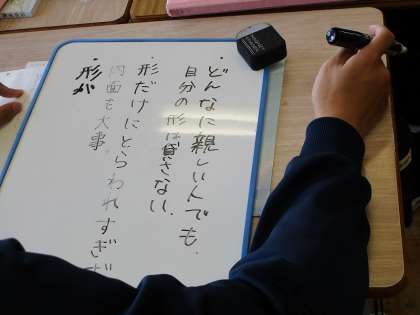 ・どんなに親しい人でも、
自分の形は貸さない。
・形だけにとらわれすぎ
内面も大事。
・形が